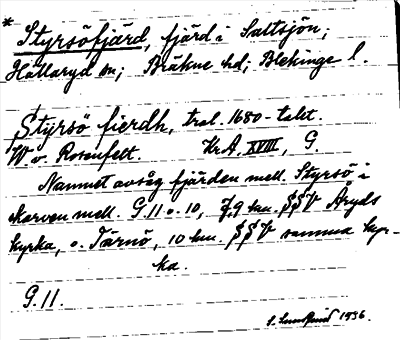 * Styrsöfjärd, fjärd i Saltsjön;
Hällaryd sn; Bräkne hd; Blekinge l.
Styrsö fierdh, trol. 1680-talet.
W v. Rosenfelt. Kr.A. XVIII, G.
Namnet avsåg fjärden mell. Styrsö i
skarven mell. G. 11 o. 10, 7,9 km. SSV Åryds
kyrka, o. Tärnö, 10 km. SSV samma kyr-
ka.
G. 11.
S. Lundqvist 1936.